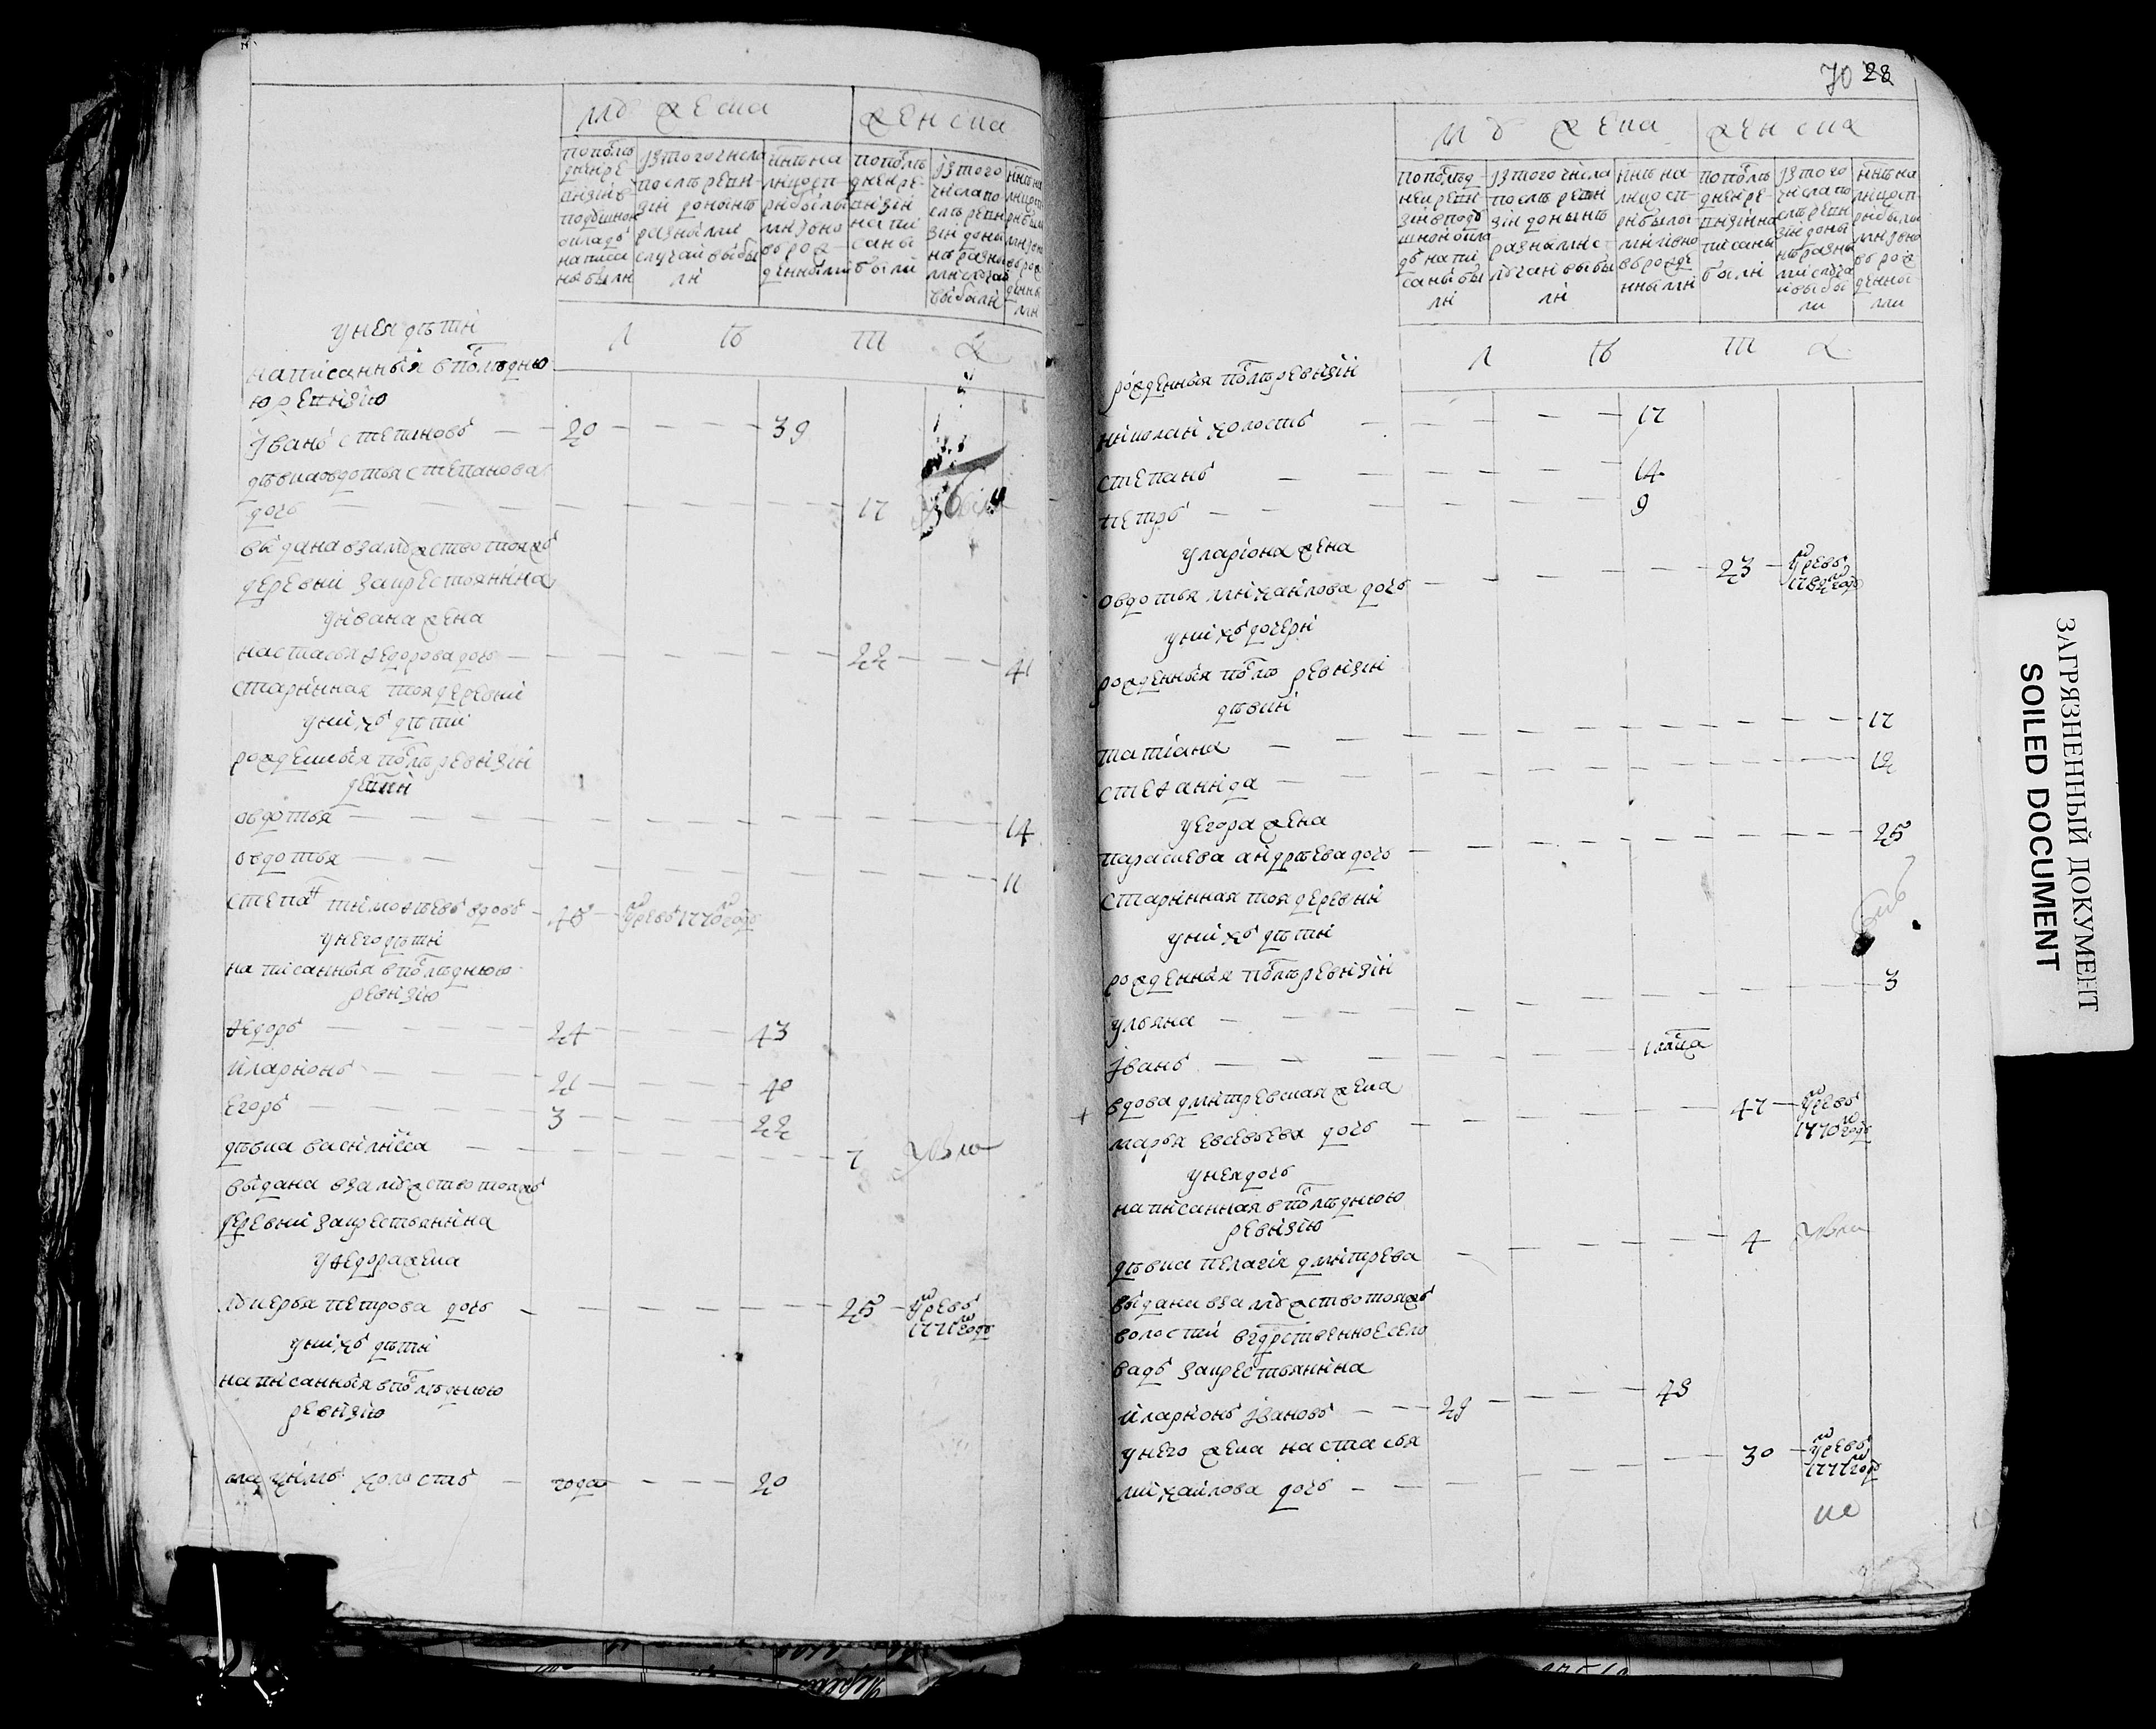 мужеска
женска
по послѣ
дней ре
визіи в
подушном
окладѣ
написа
ны были
из того числа
послѣ реви
зіи до нынѣ
разными
случаи выбы
ли
нынѣ на
лицо с п
рибылы
ми і вно
в рож
денными
по послѣ
дней ре
визіи
напи
саны
были
из того
числа по
слѣ реви
зіи до ны
нѣ разны
ми случаи
выбыли
л ѣ т а
у нея дѣти
написанныя в послѣднюю
ревизию
Іванъ Степановъ 20 39
дѣвка Овдотья Степанова
дочь 17
выдана в замужство тояжъ
деревни за крестьянина
у Ивана жена
Настасья Федорова дочь 22 41
старинная тоя деревни
у них дѣти
рожденныя послѣ ревизіи
Овдотья 14
Овдотья 11
Степан Тимофеевъ вдовъ 48 умре въ 1770 году
у него дѣти
написанныя в послѣднюю
ревизию
Федоръ 24 43
Иларионъ 21 40
Егоръ 3 22
дѣвка Василиса 7
выдана в замужство тояжъ
деревни за крестьянина
у Федора жена
Лукерья Петрова дочь 25 умре въ
1771 году
у них дѣти
написанныя в послѣднюю
ревизию
холостъ года 20
70 28
мужеска
женска
по послѣд
ней реви
зіи в поду
шной окла
дѣ напи
саны бы
ли
из того числа
послѣ реви
зіи до нынѣ
разными с
лучаи выбы
ли
нынѣ на
лицо с п
рибылы
ми і вно
в рожде
нными
по послѣ
дней ре
визіи на
писаны
были
из того
числа по
слѣ реви
зіи до ны
нѣ разны
ми случа
и выбы
ли
нынѣ на
лицо с п
рибылы
ми і вно
в рож
денны
ми
л ѣ т а
рожденныя послѣ ревизіи
Николаи холостъ 17
Степанъ 14
Петръ 9
у Лариона жена
Овдотья Михаилова дочь 23 умре въ
у них дочери
рожденныя послѣ ревизіи
дѣвки
Татиана 17
Стефанида 12
у Егора жена
Параскева Андрѣева дочь 25
старинная тоя деревни
у них дѣти
рожденныя послѣ ревизіи
Ульяна 3
Іванъ
вдова Дмитревская жена
Марья Евсевьева дочь 47 умре въ
1770 году
у нея дочь
написанная в послѣднюю
ревизию
дѣвка Пелагія Дмитрева 4
выдана в замужство тояжъ
волости
за крестьянина
Иларионъ Івановъ 29 48
у него жена Настасья
Михаилова дочь 30 умре въ
1771 году
ЗАГРЯЗНЕННЫЙ ДОКУМЕНТ
SOILED DOCUMENT